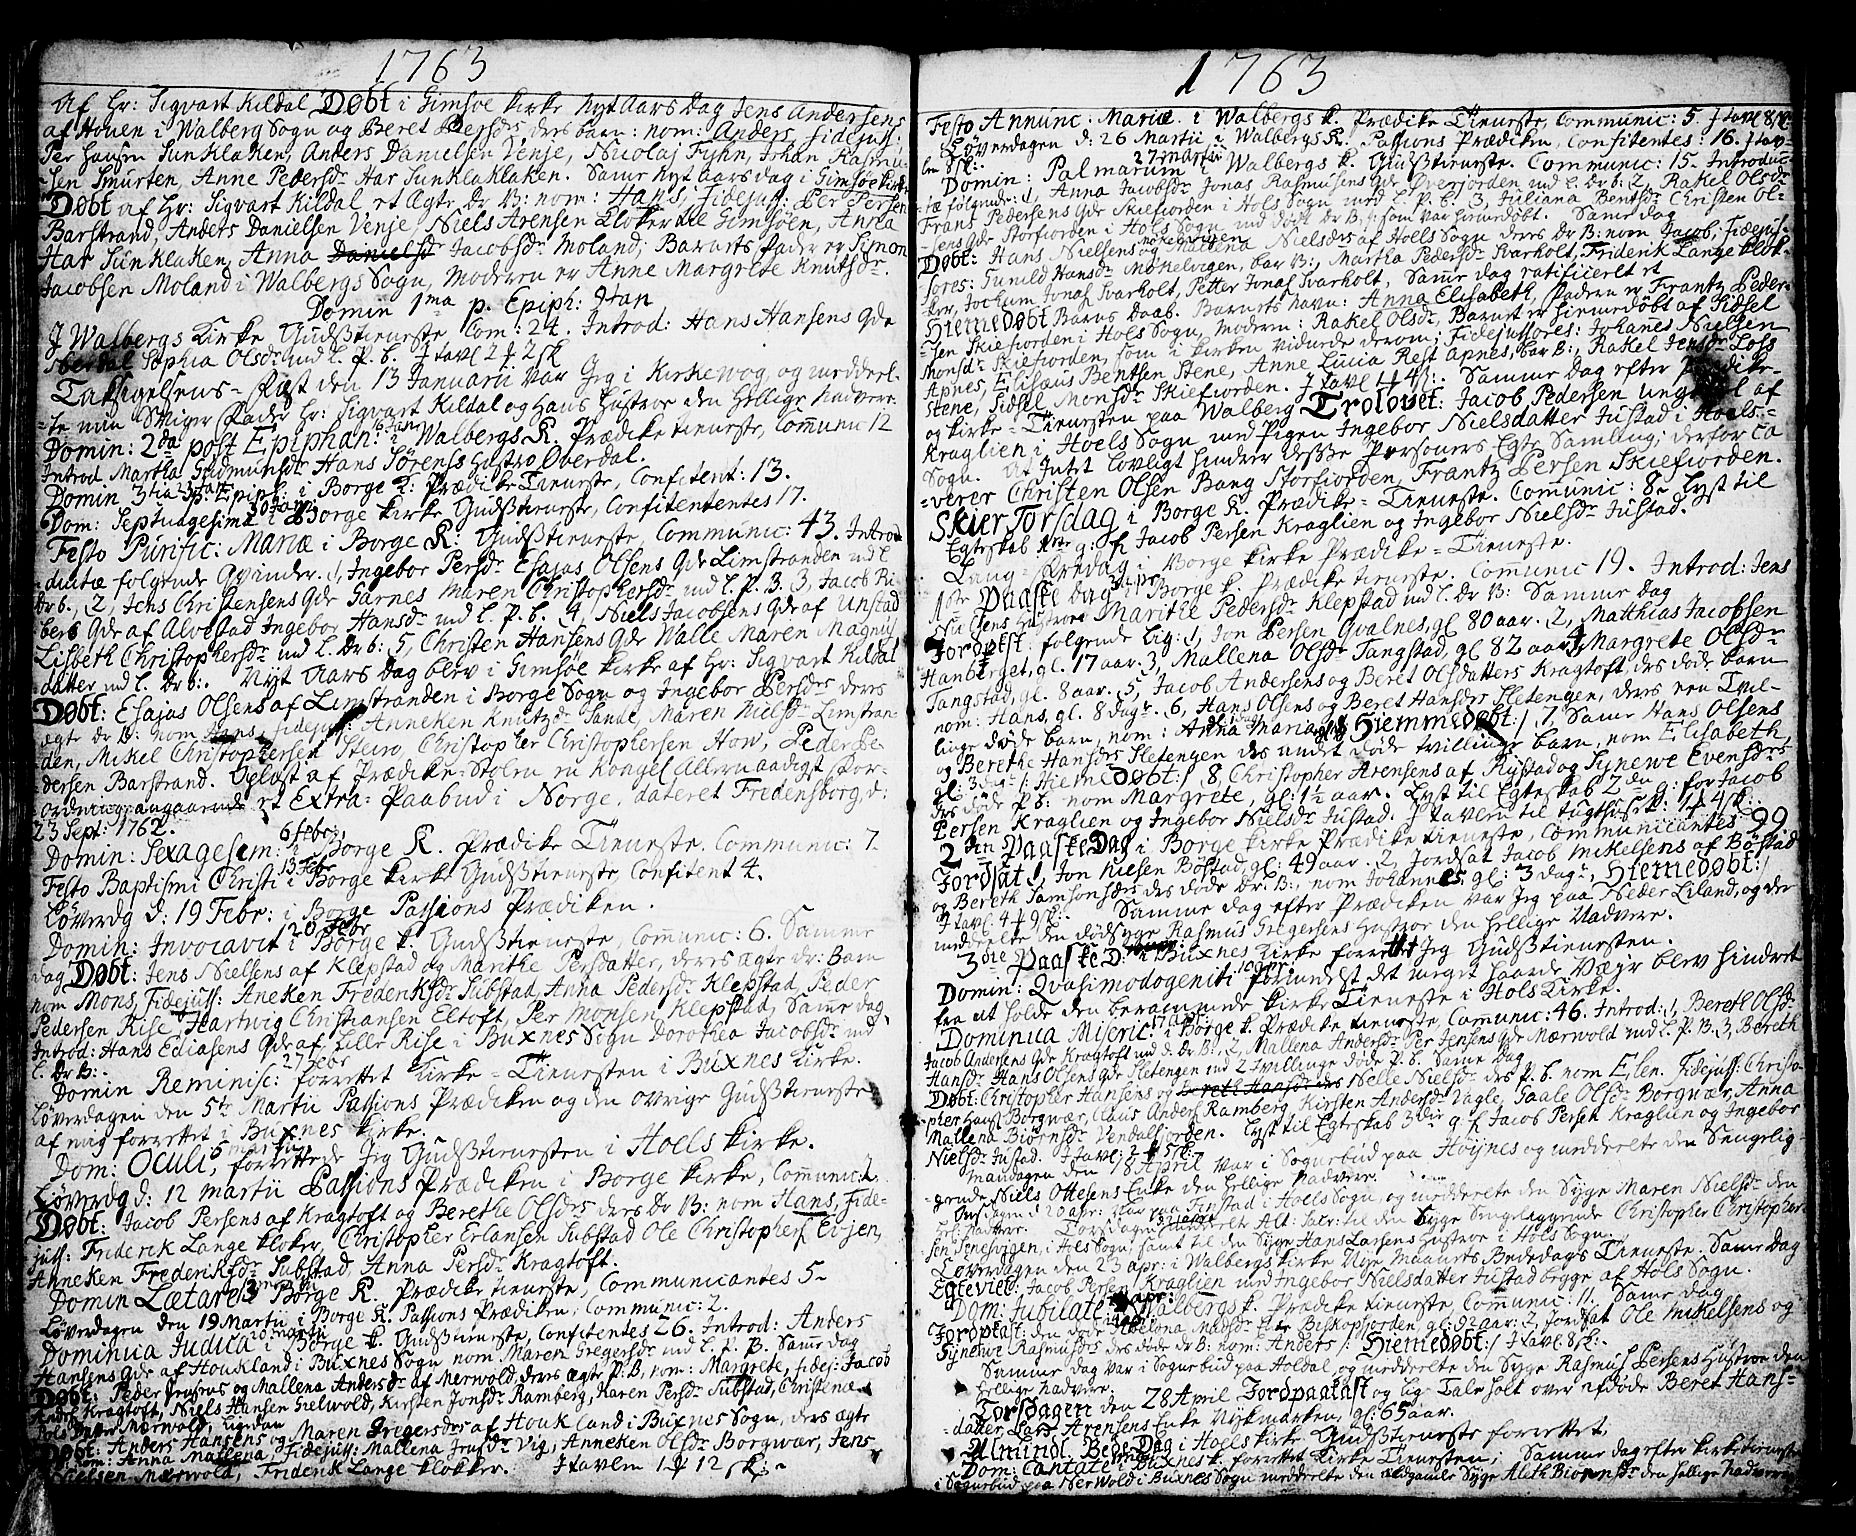 1763
Af Hr: Sigvart Kildal Døbt i Gimsøe Kirke Nyt Aars Dag Jens Andersens
af Hoven i Walberg Sogn og Beret Persdr ders barn: nom: Anders, fidejuss:
Per Hansen Sunklaken, Anders Danielsen Venje, Nicolaj Fyhn, Johan Rasmu-
-sen Smurten, Anne Pedersdr Har Sunklaklaken. Samr Nyt aarsdag i Gimsøe Kirke
Døbt af Hr: Sigvart Kildal et Ægte Dr B: nom: Hans, fidejuss: Per Persen
Barstrand, Anders Danielsen Venje, Niels Arensen Kloker til Gimsøen, Anna
Har Sunklaken, Anna Danielsdr Jacobsdr Moland; Barnets Fader er Simon
Jacobsen Moland i Walbergs Sogn, Moderen er Anne Margrete Knutsdr.
Domin 1ma p. Epiph: Jan
J Walbergs Kirke Gudstieneste Com: 24. Introd: Hans Hansens Qde
Sophia Olsdr md l. P. b. J tavl 2 # 2 sk
Taksigelsens-Fæst den 13 Januarii var Jeg i Kirkevog og meddeel-
-te min Sviger Fader Hr: Sigvart Kildal og Hans Hustroe den Hellige Nadvere
Domin: 2da post Epiphan: 16 Jan i Walbergs K. Prædiketieneste, Communic 12
Introd Martha Gudmundsdr Hans Sørens Hustro Overdal.
Domin 3tia p. Epiph: i Borge K: Prædike Tieneste, Confitent: 13.
Dom: Septuagesima 30 Jan i Borge Kirke Gudstieneste, Confitentes 17.
Festo Purific: Mariæ i Borge K: Gudstieneste, Communic: 43. Introd
ductæ følgende Qvinder. 1, Ingebor Persdr Esajas Olsens Qde Limstranden md l
Dr b., 2, Jens Christensens Qde Garnes Maren Christophersdr md l. P. B. 3, Jacob Ri-
bers Qde af Alvestad Ingebor Hansdr md l. P. b. 4, Niels Jacobsens Qde af Unstad
Lisbeth Christophersdr md l. Dr b: 5, Christen Hansens Qde Walle Maren Magnus
datter md l. Dr b:. Nyt Aars Dag blev i Gimsøe Kirke af Hr: Sigvart Kildal
Døbt: Esajas Olsens af Limstranden i Borge Sogn og Ingebor Persdrs ders
ægte Dr B: nom Hans, fidejuss: Anneken Knutzdr Sande, Maren Nielsdr Limstran-
den, Mikel Christophersen Steiro, Christopher Christophersen How, Peder Pe
dersen Barstrand. Oplæst af Prædike-Stolen en Kongel Allernaadigst For-
ordning angaaende et Extra-Paabud i Norge, dateret Fredensborg, d:
23 Sept: 1762.
Domin: Sexagesim: 6 febr: i Borge K. Prædike Tieneste. Communic: 7.
Festo Baptismi Christi 13 Febr i Borge Kirke Gudstieneste, Confitent 4.
Løverdg d: 19 Febr: i Borge Passions Prædiken.
Domin: Invocavit 20 Febr i Borge K. Gudstieneste, Communic: 6. Samme
dag Døbt: Jens Nielsens af Klepstad og Marithe Persdatter, ders ægte Dr: Barn
nom Mons, Fidejuss: Aneken Frederiksdr Substad, Anna Pedersdr Klepstad, Peder
Pedersen Rise, Hartwig Christiansen Eltoft, Per Monsen Klepstad, Samr dag
Introd: Hans Ediasens Qde af Lille Rise i Buxnes Sogn Dorothea Jacobsdr md
l. Dr B:.
Domin Reminisc: 27 Febr forrettet Kirke-Tienesten i Buxnes Kirke.
Løverdagen den 5te Martii Passions Prædiken og den øvrige Gudstieneste
af mig forrettet i Buxnes Kirke.
Dom: Oculi, 6 martii forrettede Jeg Gudstienesten i Hoels Kirke.
Løverdg d: 12 martii Passions Prædiken i Borge Kirke, Communic:
Døbt: Jacob Persens af Kragtoft og Berethe Olsdrs ders Dr B: nom Hans, Fide-
juss: Friderik Lange Kloker, Christopher Erlansen Substad Ole Christophers Eisen,
Anneken Frederiksdr Substad, Anna Persdr Kragtoft.
Domin Lætare 13 mart i Borge K. Prædike tieneste, Communicantes 5-
Løverdagen den 19 Martii i Borge K. Passions Prædiken, Communic: 2.
Dominica Judica 20 martii i Borge K. Gudstieneste, Confitentes 26. Introd: Anders
Hansens Qde af Houkland i Buxnes Sogn nom Maren Gregersdr md l. P. B. Samr dag
Døbt: Peder Jensens og Mallena Andersdr af Merwold, ders ægte P: B, nom: Margrete, fidej: Jacob
Anders Kragtoft, Niels Hansen Guelwold, Kirsten Jonsdr Ramberg, Karen Persdr Substad, Christen
Pols Merwold, Ligedan
Døbt: Anders Hansens og Maren Gregersdrs af Houkland i Buxnes Sogn, ders ægte
nom: Anna Mallena, Fidejuss: Mallena Jensdr Vig, Anneken Olsdr Borgwær, Jens
Nielsen Mærwold, Friderik Lange klokker. J tavlen 1 # 12 sk:-
1763
Festo Annunc: Mariæ i Walbergs K. Prædike Tieneste, Communic: 5 J tavl 8 sk.
Løverdagen d: 26 Martii i Walbergs K. Passions Prædiken, Confitentes: 16. J tav-
len sk:.
Domin: Palmarum 27 martii i Walbergs K. Gudstieneste. Communic: 15- Introduc-
-tæ følgende: 1, Anna Jacobsdr Jonas Rasmusens Qde Øverjorden md l. Dr b: 2, Rakel Olsdr
Frans Pedersens Qde Skiefiorden i Hols Sogn md l. P. b. 3, Juliana Bentsdr Christen Ol-
-sens Qde Storfiorden i Hols Sogn md dødt Dr B: som var hiemedøbt. Samme dag
Døbt: Hans Nielsens og Anna Nielsdrs af Hoels Sogn ders Dr B: nom Jacob, Fidejus-
sores: Gunild Hansdr Mækelvigen, bar B:, Martha Pedersdr Svarholt, Friderik Lange Klok-
ker, Jochum Jonas Svarholt, Petter Jonas Svarholt, Samr dag ratificeret et
Hiemedøbt Barns Daab. Barnets Navn: Anna Elisabeth, Faderen er Frantz Peder-
-sen Skiefiorden i Hols Sogn, Moderen: Rakel Olsdr, Barnet er hiemedøbt af Sidsel
Monsdr Skiefiorden, som i Kirken vidnede derom; Fidejussores: Johanes Nielsen
Apnes, Elisæus Bentsen Stene, Anne Lucia Rest Apnes, bar B:, Rakel Jensdr Loss
Stene, Sidsel Monsdr Skiefiorden. J tavl 1 # 4 sk:. Samme Dag efter Prædike-
og Kirke-Tienesten paa Walberg Trolovet: Jacob Pedersen ungkarl af
Kraglien i Hoels Sogn med Pigen Ingebor Nielsdatter Justad i Hoels-
Sogn. At Intet Lovligt hindrer disse Personers Egte Samling; derfor Ca
-verer Christen Olsen Bang Storfiorden, Frantz Persen Skiefiorden.
Skier Torsdag i Borge K. Prædike-Tieneste. Communic: 8- Lyst til
Egteskab 1ste g: f Jacob Persen Kraglien og Ingebor Nielsdr Justad.
Lang-Fredag i Borge Kirke Prædike-Tieneste.
1ste Paaske Dag 3 apr i Borge K. Prædike tieneste, Communic 19. Introd: Jens
Olsens Hustroe Marithe Pedersdr Klepstad md l. Dr B: Samme dag
Jordpkst: følgende Lig: 1, Jon Persen Qvalnes, gl 80 aar. 2, Matthias Jacobsen
Hanberget, gl. 17 aar. 3, Mallena Olsdr Tangstad, gl 82 aar 4, Margrete Olsdr
Tangstad, gl. 8 aar. 5, Jacob Andersens og Beret Olsdatters Kragtoft, des døde barn
nom: Hans, gl. 8 dagr. 6, Hans Olsens og Beret Hansdrs Sletengen, ders een Tvil-
linge døde barn, nom: Anna Maria Hiemmedøbt / 7, Samr Hans Olsens
og Berethe Hansdrs Sletengen des andet døde tvillinge barn, nom Elisabeth,
gl: 3 dgr / Hieme Døbt / 8, Christopher Arensens af Rystad og Synewe Evensdrs
drs døde P b: nom Margrete, gl: 1½ aar. Lyst til Egteskab 2den g: for Jacob
Persen Kraglien og Ingebor Nielsdr Justad. J tavlen til tugthuset 1 # 4 sk:
2den Paaske Dag i Borge Kirke Prædike tieneste, Communicantes 99
Jordsat 1, Jon Nielsen Bøstad, gl: 49 aar. 2, Jordsat Jacob Mikelsens af Bøstad
og Bereth Samsonsdrs des døde Dr. B:, nom Johannes, gl: 3 dagr, Hiemedøbt:/
J tavl. 4 # 9 sk:. Samme dag efter Prædiken var Jeg paa Neder Liland, og der
meddeelte den dødsyge Rasmus Gregersens Hustroe den Hellige Nadvere.
3die Paaske D: i Buxnes Kirke forrettet Jeg Gudstienesten.
Domin: Qvasimodogeniti 10 apr formedelst det meget haarde Væyr blev hindret
fra at holde den berammede Kirke Tieneste i Hols Kirke.
Dominica Miseric: 17 apr i Borge K. Prædike tieneste, Communic: 46. Introd: 1, Bereth Olsdr
Jacob Andersens Qde Kragtoft md d. Dr B:, 2, Mallena Andersdr Per Jensens Qde Mærwold md l. P. B. 3, Bereth
Hansdr Hans Olsens Qde Sletengen md 2 tvillinge døde P. b. Samr Dag
Døbt: Christopher Hansens og Bereth Hansdrs Nelle Nielsdr des P. b. nom Elen. Fidejuss: Christo-
pher Hansf Borgvær, Claus Anders Ramberg, Kirsten Andersdr Vagle, Gaale Olsdr Borgvær, Anna
Mallena Biørnsdr Vendalfjorden. Lyst til Egteskab 3die g f Jacob Persen Kraglien og Ingebor
Nielsdr Justad. J tavl: 2 # 5 sk:
Mandagen den 18 April var i Sognebud paa Høynes og meddeelte den Sengelig-
gende Niels Ottesens Enke den Hellige Nadvere.
Onsdagen d 20 apr: var paa Finstad i Hoels Sogn, og meddeelte den Syge Maren Nielsdr den
Hel: Nadvere. Torsdagen Alt: Sacr: til den Syge Sengeliggende Christopher Christopher-
sen Senesvigen, i Hoels Sogn, samt til den Syge Hans Larsens Hustroe i Hols Sogn.
Løverdagen den 23 apr: i Walbergs Kirke Nye Maanets Bededags Tieneste. Samr Dag
Egteviet: Jacob Persen Kraglien med Ingebor Nielsdatter Justad begge af Hols Sogn.
Dom: Jubilate 24 apr: i Walbergs K. Prædike tieneste, Communic: 11. Samr dag
Jordpkast: den døde Abelona Madsdr Biskopjorden gl: 92 aar: 2, Jordsat Ole Mikelsens og
Synewe Rasmusdrs des døde Dr B: nom: Anders /: Hiemedøbt: / J tavl 8 sk:.
Samme Dag var i Sognebud paa Holdal, og meddeelte den Syge Rasmus Persens Hustroe den
Hellige Nadvere.
Torsdagen den 28 April Jordpaakast og lig-Tale holt over afdøde Beret Hans-
datter, Lars Arensens Enke Nykmarken, gl: 65 aar.
Almindl. Bede Dag i Hoels Kirke Gudstieneste forrettet,
Dom: Cantate i Buxnes K. forrettet Kirke Tienesten; Samme dag efter Kirketienesten
i Sognebud paa Nerwold i Buxnes Sogn meddeelte den ældgamle Syge Aleth Biørnsdr den hellige Nadvere